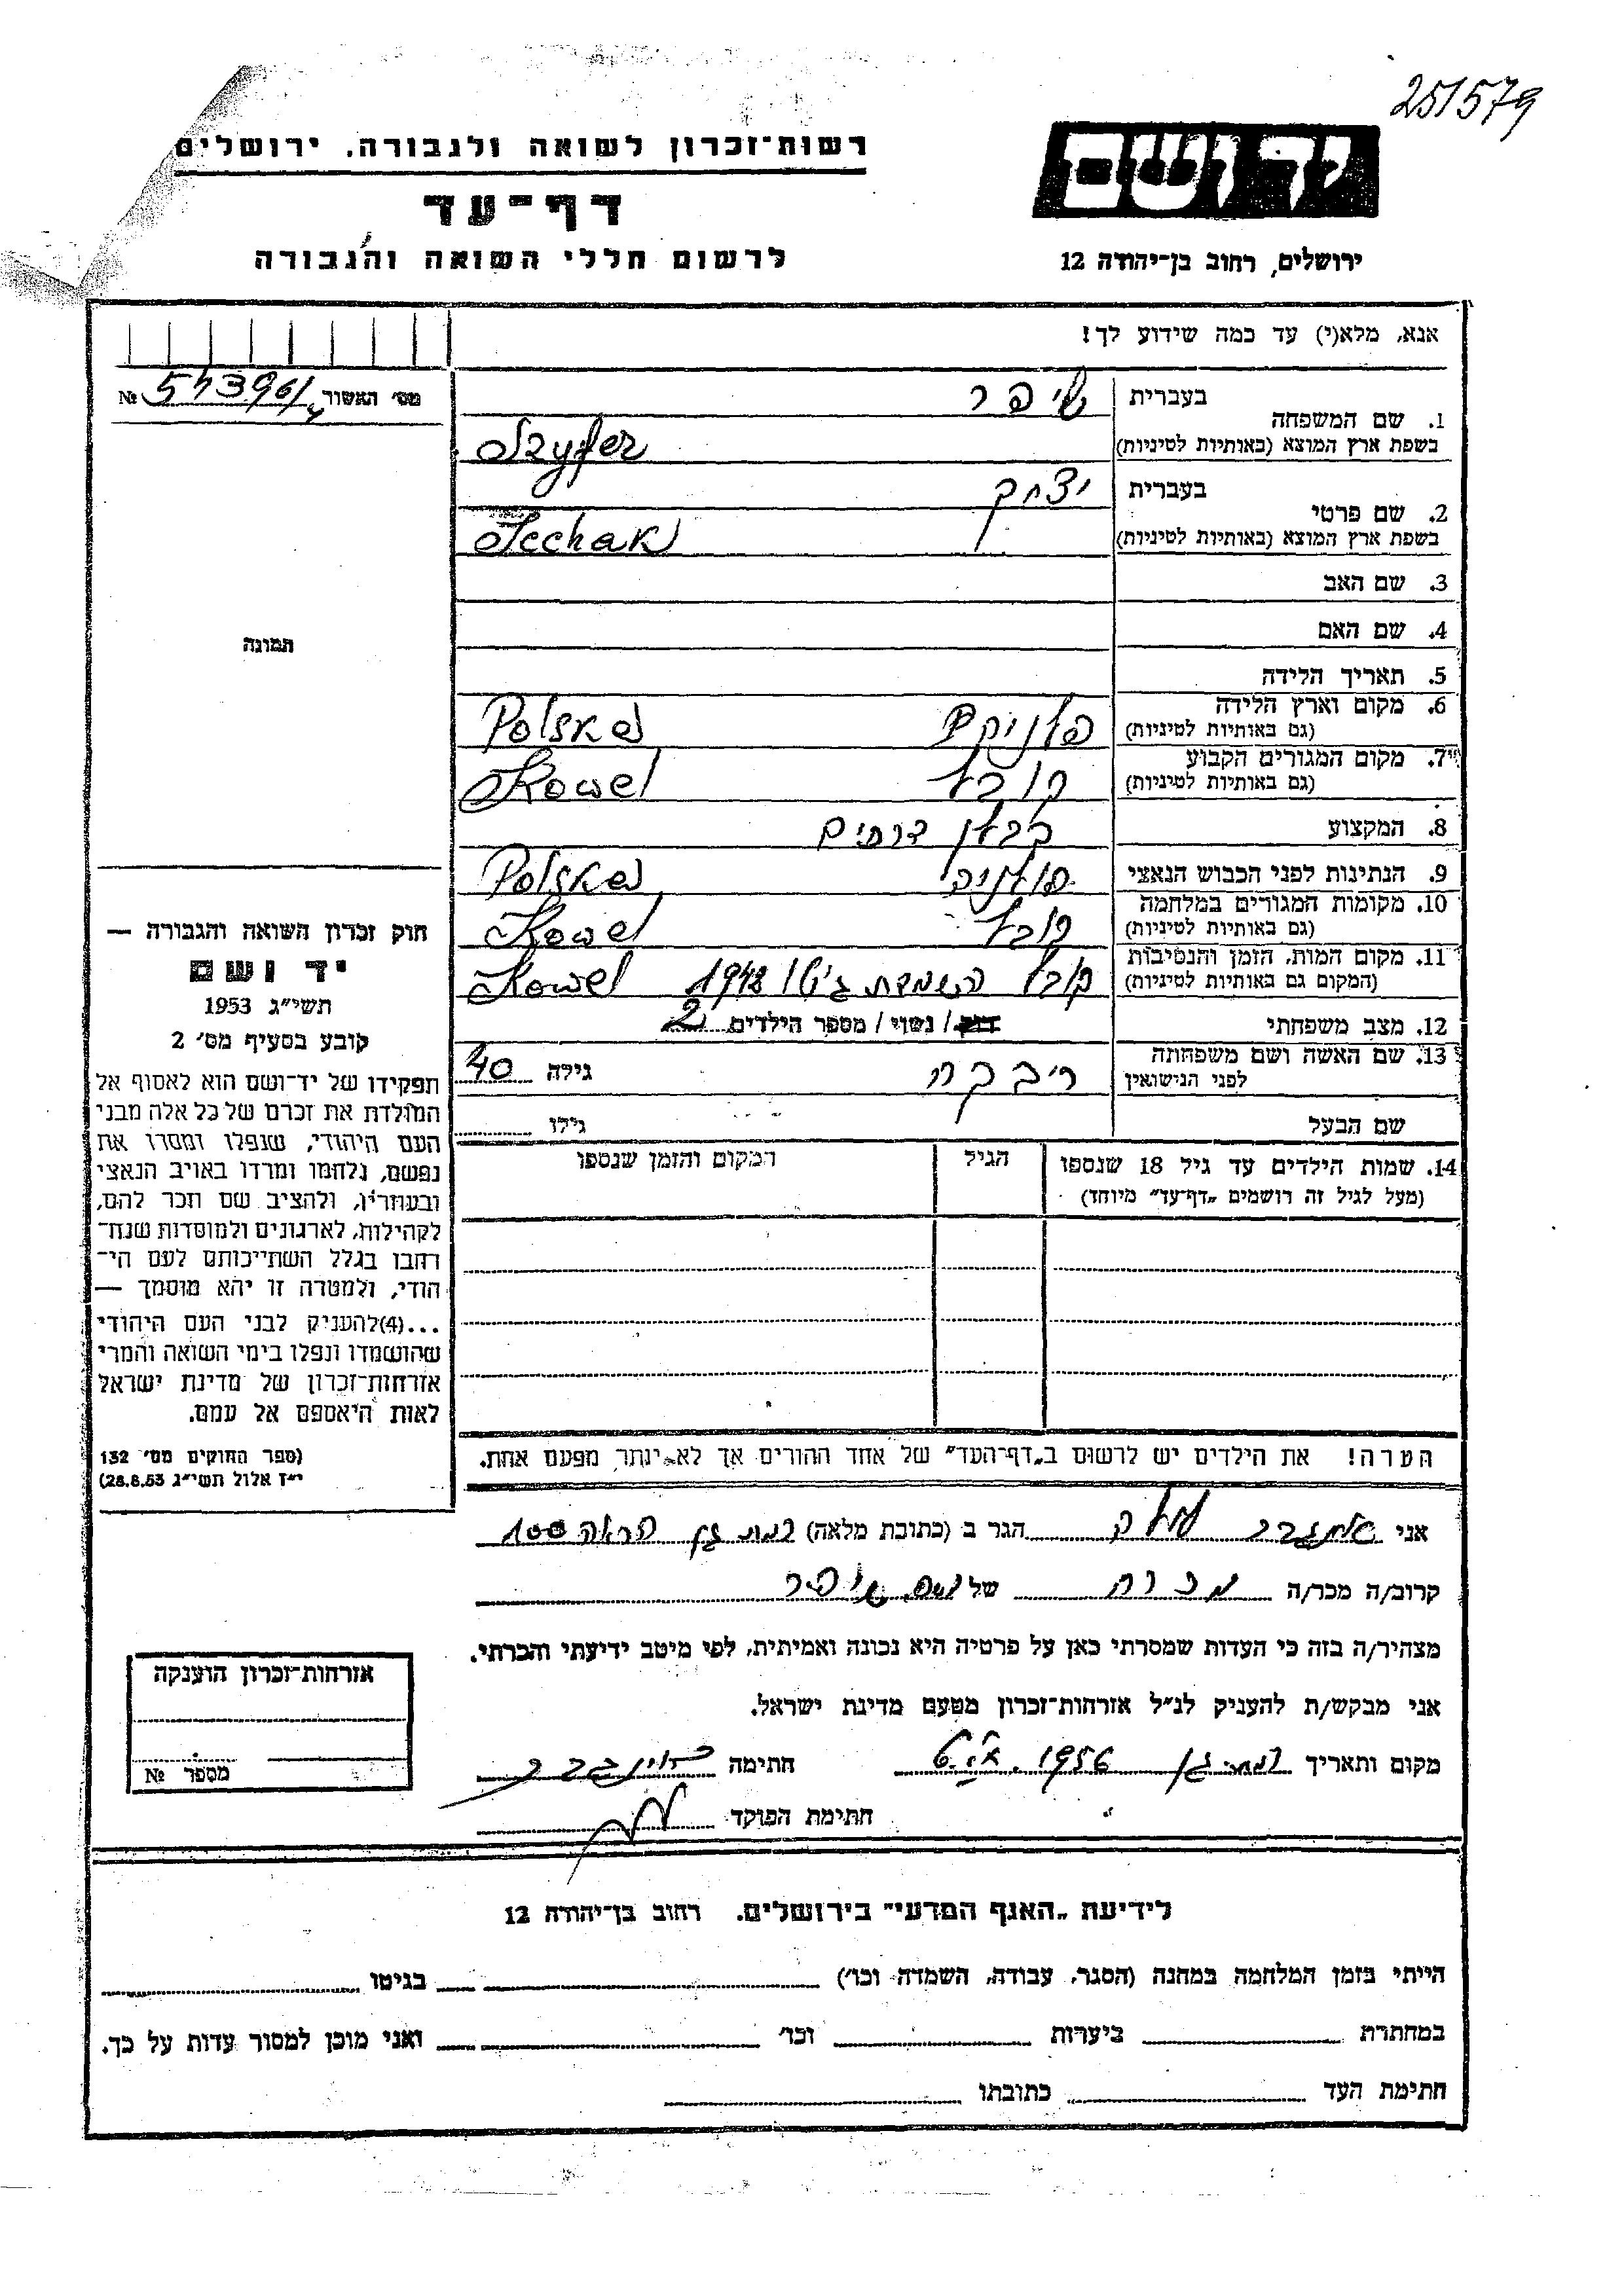 251579
רשות־זכרון לשואה ולגבורה. ירושלים
דף־עד
לרשום חללי השואה והגבורה
יד ושם
ירושלים, רחוב בן־יהודה 12
אנא, מלא(י) עד כמה שידוע לך!
מס׳ האשור № 54396/
תמונה
1. שם המשפחה
בעברית שיפר
בשפת ארץ המוצא (באותיות לטיניות) Szyfer
2. שם פרטי
בעברית יצחק
בשפת ארץ המוצא (באותיות לטיניות) Icchak
3. שם האב
4. שם האם
5. תאריך הלידה
6. מקום וארץ הלידה
(גם באותיות לטיניות) Polska
7. מקום המגורים הקבוע
(גם באותיות לטיניות) קובל Kowel
8. המקצוע קבלן דרכים
9. הנתינות לפני הכבוש הנאצי פולניה Polska
10. מקומות המגורים במלחמה
(גם באותיות לטיניות) קובל Kowel
11. מקום המות, הזמן והנסיבות
(המקום גם באותיות לטיניות) קובל השמדת גיטו 1942 Kowel
12. מצב משפחתי רוק / נשוי / מספר הילדים 2
13. שם האשה ושם משפחתה
לפני הנישואין רבקה גילה 40
שם הבעל גילו
14. שמות הילדים עד גיל 18 שנספו הגיל המקום והזמן שנספו
(מעל לגיל זה רושמים „דף־עד” מיוחד)
הערה! את הילדים יש לרשום ב„דף־העד” של אחד ההורים אך לא־ינתר מפעם אחת.
חוק זכרון השואה והגבורה —
יד ושם
תשי״ג 1953
קובע בסעיף מס׳ 2
תפקידו של יד־ושם הוא לאסוף אל
המולדת את זכרם של כל אלה מבני
העם היהודי, שנפלו ומסרו את
נפשם, נלחמו ומרדו באויב הנאצי
ובעוזריו, ולהציב שם וזכר להם,
לקהילות, לארגונים ולמוסדות שנח־
רבו בגלל השתייכותם לעם הי־
הודי, ולמטרה זו יהא מוסמך —
...(4)להעניק לבני העם היהודי
שהושמדו ונפלו בימי השואה והמרי
אזרחות־זכרון של מדינת ישראל
לאות היאספם אל עמם.
(ספר החוקים מס׳ 132
י״ז אלול תשי״ג 28.8.53)
אני הגר ב (כתובת מלאה) רמת גן הראה 100
קרוב/ה מכר/ה מכרה של שיפר
מצהיר/ה בזה כי העדות שמסרתי כאן על פרטיה היא נכונה ואמיתית, לפי מיטב ידיעתי והכרתי.
אני מבקש/ת להעניק לנ״ל אזרחות־זכרון מטעם מדינת ישראל.
מקום ותאריך רמת גן 1956 חתימה
חתימת הפוקד
אזרחות־זכרון הוענקה
מספר №
לידיעת „האגף המדעי” בירושלים. רחוב בן־יהודה 12
הייתי בזמן המלחמה במחנה (הסגר, עבודה, השמדה וכו׳) בגיטו
במחתרת ביערות וכו׳ ואני מוכן למסור עדות על כך.
חתימת העד כתובתו